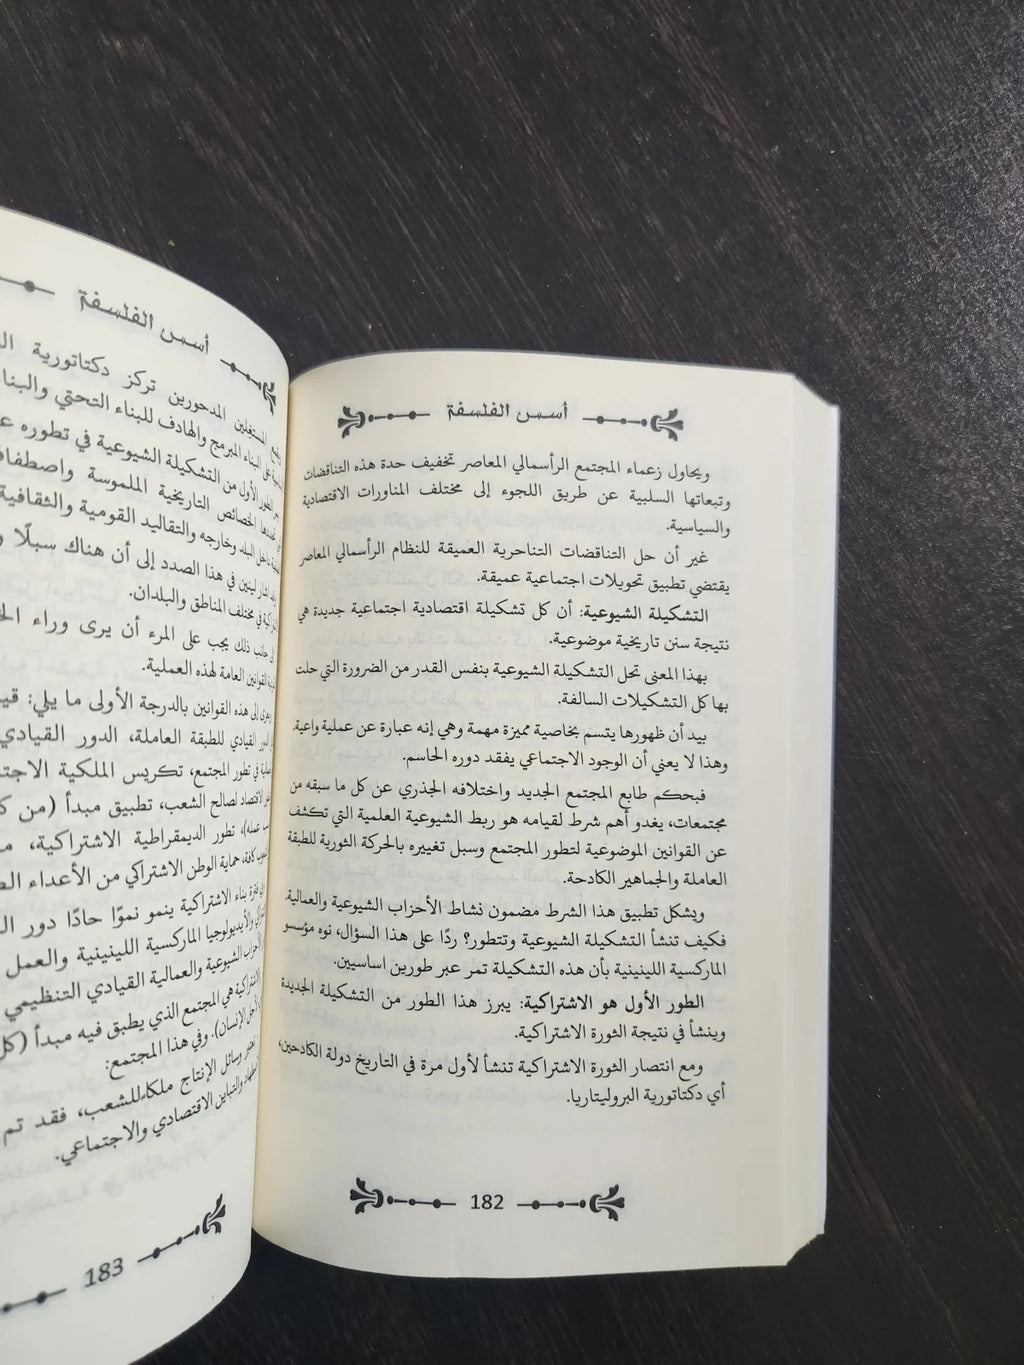 أسس الفلسفة
ويحاول زعماء المجتمع الرأسمالي المعاصر تخفيف حدة هذه التناقضات
وتبعاتها السلبية عن طريق اللجوء إلى مختلف المناورات الاقتصادية
والسياسية.
غير أن حل التناقضات التناحرية العميقة للنظام الرأسمالي المعاصر
يقتضي تطبيق تحويلات اجتماعية عميقة.
التشكيلة الشيوعية: أن كل تشكيلة اقتصادية اجتماعية جديدة هي
نتيجة سنن تاريخية موضوعية.
بهذا المعنى تحل التشكيلة الشيوعية بنفس القدر من الضرورة التي حلت
بها كل التشكيلات السالفة.
بيد أن ظهورها يتسم بخاصية مميزة مهمة وهي إنه عبارة عن عملية واعية.
وهذا لا يعني أن الوجود الاجتماعي يفقد دوره الحاسم.
فبحكم طابع المجتمع الجديد واختلافه الجذري عن كل ما سبقه من
مجتمعات، يغدو أهم شرط لقيامه هو ربط الشيوعية العلمية التي تكشف
عن القوانين الموضوعية لتطور المجتمع وسبل تغييره بالحركة الثورية للطبقة
العاملة والجماهير الكادحة.
ويشكل تطبيق هذا الشرط مضمون نشاط الأحزاب الشيوعية والعمالية.
فكيف تنشأ التشكيلة الشيوعية وتتطور؟ ردًا على هذا السؤال، نوه مؤسسو
الماركسية اللينينية بأن هذه التشكيلة تمر عبر طورين اساسيين.
الطور الأول هو الاشتراكية: يبرز هذا الطور من التشكيلة الجديدة
وينشأ في نتيجة الثورة الاشتراكية.
ومع انتصار الثورة الاشتراكية تنشأ لأول مرة في التاريخ دولة الكادحين،
أي دكتاتورية البروليتاريا.
182
أسس الفلسفة
المستغلين المدحورين تركز دكتاتورية
على البناء المبرمج والهادف للبناء التحتي
الطور الأول من التشكيلة الشيوعية في تطوره
الخصائص التاريخية الملموسة
داخل البلد وخارجه والتقاليد القومية
لينين في هذا الصدد إلى أن هناك سبلًا
في مختلف المناطق والبلدان.
جانب ذلك يجب على المرء أن يرى وراء
القوانين العامة لهذه العملية.
إلى هذه القوانين بالدرجة الأولى ما يلي:
الدور القيادي للطبقة العاملة، الدور القيادي
في تطور المجتمع، تكريس الملكية
الاقتصاد لصالح الشعب، تطبيق مبدأ (من
عمله)، تطور الديمقراطية الاشتراكية،
كافة، حماية الوطن الاشتراكي من الأعداء
فترة بناء الاشتراكية ينمو نموًا حادًا دور
والأيديولوجيا الماركسية اللينينية والعمل
الشيوعية والعمالية القيادي التنظيمي
الاشتراكية هي المجتمع الذي يطبق فيه مبدأ
الإنسان). وفي هذا المجتمع:
وسائل الإنتاج ملكاً للشعب، فقد تم
والتباين الاقتصادي والاجتماعي.
183